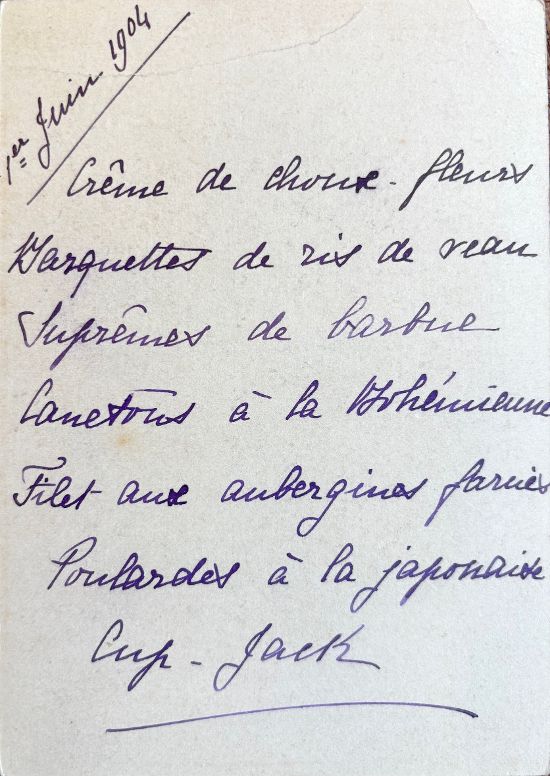 1er Juin 1904
Crême de choux-fleurs
Barquettes de ris de veau
Suprêmes de barbue
Canetons à la Bohémienne
Filet aux aubergines farcies
Poulardes à la japonaise
Cup-Jack